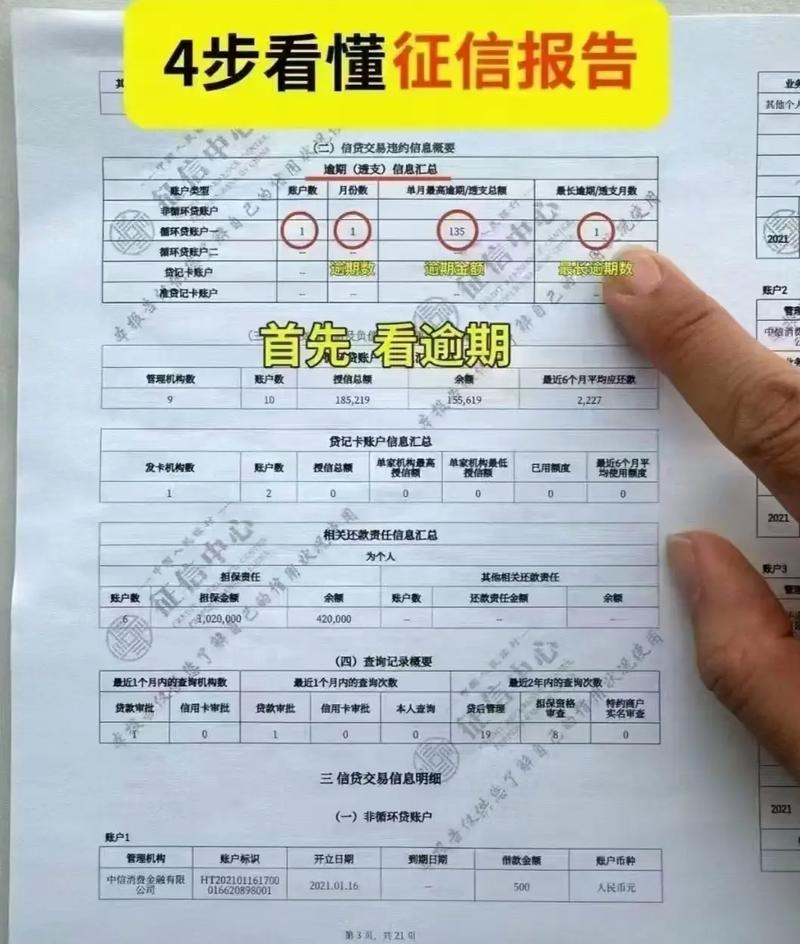 4步看懂征信报告
（二）信贷交易违约信息概要
逾期（透支）信息汇总
账户类型 账户数 月份数 单月最高逾期/透支总额 最长逾期/透支月数
非循环贷账户
循环贷账户一 1 1 135 1
循环贷账户二 --
贷记卡账户 -- 逾期数 逾期金额 最长逾期数
准贷记卡账户 -- -- -- --
首先 看逾期
管理机构数 账户数 授信总额 余额 最近6个月平均应还款
9 10 185,219 155,619 2,227
贷记卡账户信息汇总
发卡机构数 账户数 授信总额 单家机构最高授信额 单家机构最低授信额 已用额度 最近6个月平均使用额度
1 2 0 0 0 0 0
相关还款责任信息汇总
为个人
担保责任 其他相关还款责任
账户数 担保金额 余额 账户数 还款责任金额 余额
6 1,020,000 420,000 -- -- --
（四）查询记录概要
最近1个月内的查询机构数 最近1个月内的查询次数 最近2年内的查询次数
贷款审批 信用卡审批 贷款审批 信用卡审批 本人查询 贷后管理 担保资格审查 特约商户实名审查
1 0 1 0 0 19 8 0
三 信贷交易信息明细
（一）非循环贷账户
账户1
管理机构 账户标识 开立日期 到期日期 借款金额 账户币种
中信消费金融有限公司 HT202101161700016620898001 2021.01.16 -- 500 人民币元
第 3 页，共 21 页
其他个人
2021
账户2
中信消费
2021
账户3
2021
征信中心
本报告仅供您了解自己的信用状况使用